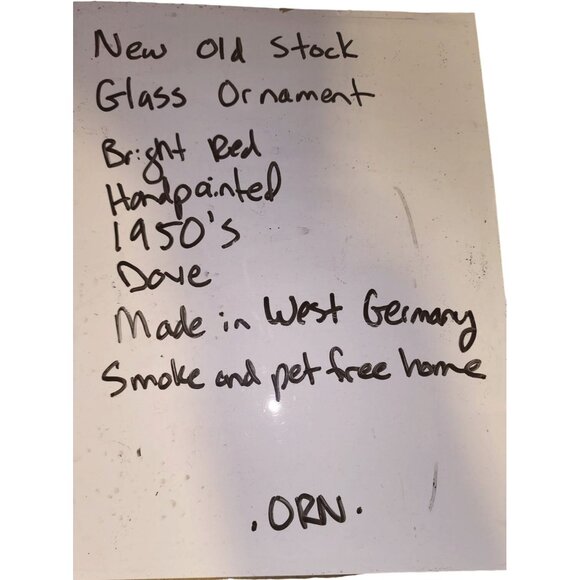 New Old Stock
Glass Ornament
Bright Red
Handpainted
1950's
Dove
Made in West Germany
Smoke and pet free home
.ORN.